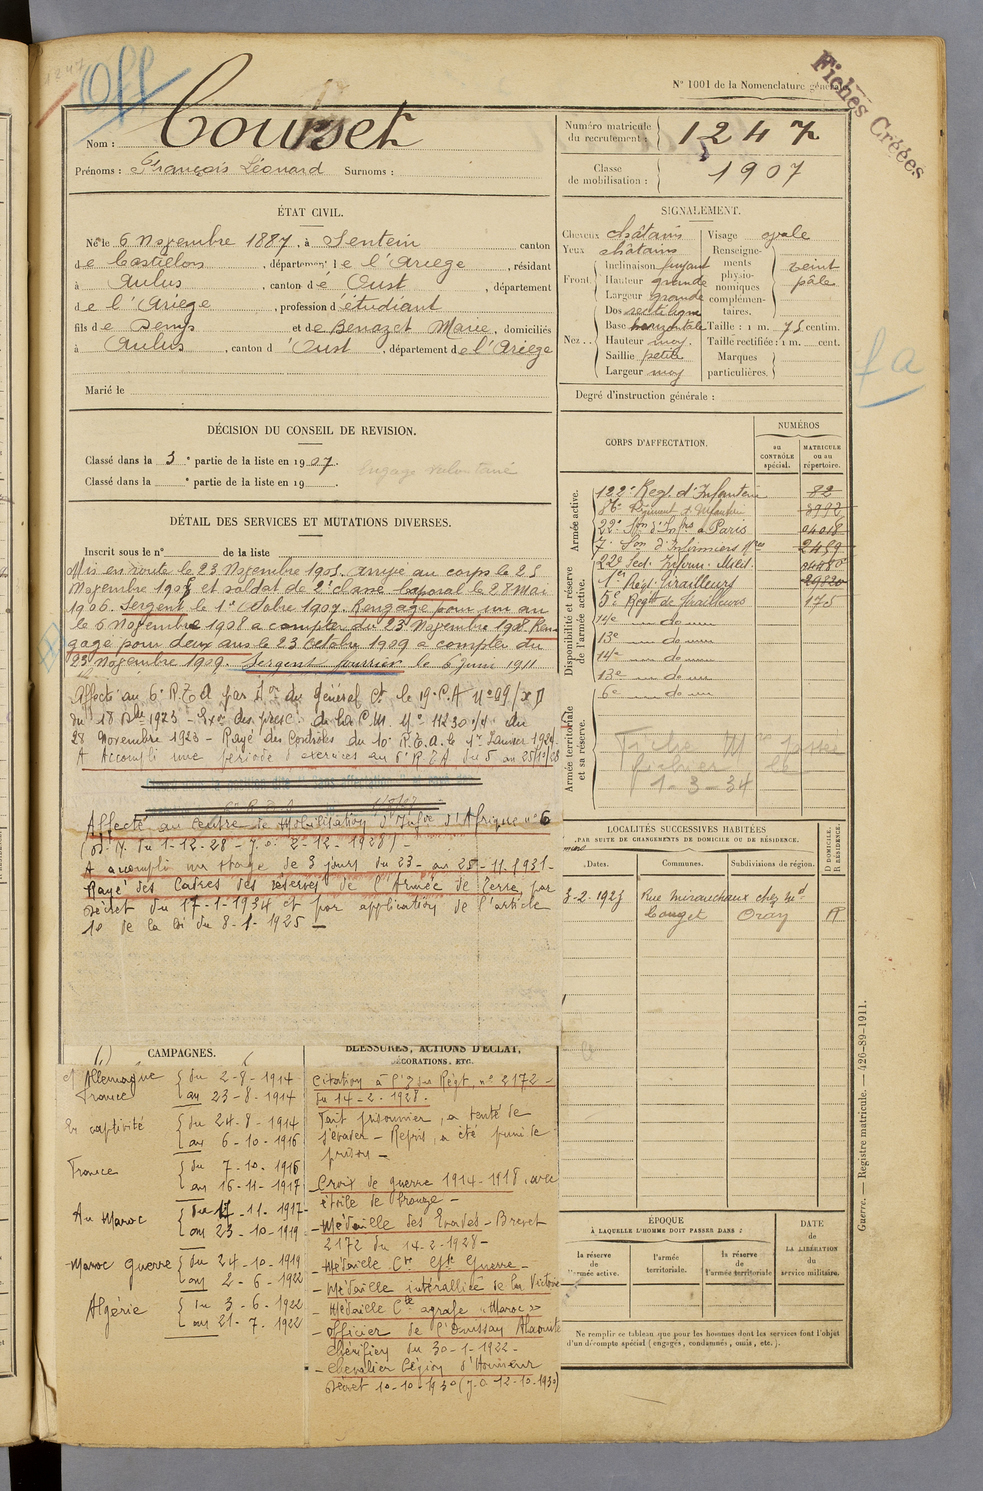 1247
Off
N° 1001 de la Nomenclature générale
Fiches Créées
Nom : Courset
Prénoms : François Léonard Surnoms :
Numéro matricule du recrutement : 1247
Classe de mobilisation : 1907
ÉTAT CIVIL.
Né le 6 Novembre 1887, à Sentein canton
de Castillon, département de l'Ariège, résidant
à Aulus, canton d'Oust, département
de l'Ariège, profession d'étudiant
fils de Denis et de Benazet Marie, domiciliés
à Aulus, canton d'Oust, département de l'Ariège
Marié le
SIGNALEMENT.
Cheveux châtains
Yeux châtains
Front Inclinaison fuyant
Hauteur grande
Largeur grande
Nez Dos rectiligne
Base horizontale
Hauteur moy.
Saillie petite
Largeur moy
Visage ovale
Renseignements physionomiques complémentaires. teint pâle
Taille : 1 m. 75 centim.
Taille rectifiée : 1 m. cent.
Marques particulières.
Degré d'instruction générale :
fa
DÉCISION DU CONSEIL DE REVISION.
Classé dans la 3e partie de la liste en 1907.
engagé volontaire
Classé dans la e partie de la liste en 19
DÉTAIL DES SERVICES ET MUTATIONS DIVERSES.
Inscrit sous le n° de la liste
Mis en route le 23 Novembre 1905. arrivé au corps le 25
Novembre 1905 et soldat de 2e classe caporal le 28 mai
1906. Sergent le 1er Octobre 1907. Rengagé pour un an
le 6 Novembre 1908 a compter du 23 Novembre 1908 Ren-
gagé pour deux ans le 23 Octobre 1909 a compter du
23 Novembre 1909. Sergent fourrier le 6 Juin 1911
Affecté au 6e R.T.A par du général Ct le 19e C.A n° 99/
28 Novembre 1923 - Rayé des Contrôles du 10e R.T.A. le 1er Janvier 1924.
A accompli une période d'exercices au 6e R.T.A du 5 au 25/10/28
Affecté au Centre de Mobilisation d'Infie d'Afrique n° 6
(D.M. du 1-12-28 - J.O. 2-12-1928) -
A accompli un stage de 3 jours du 23 - au 25-11-1931 -
Rayé des Cadres des réserves de l'Armée de Terre, par
Décret du 17-1-1934 et par application de l'article
10 de la loi du 8-1-1925 —
CORPS D'AFFECTATION.
NUMÉROS
au CONTRÔLE spécial.
MATRICULE ou au répertoire.
Armée active.
122e Regt d'Infanterie 82
86e Régiment d'Infanterie 3992
22e Son d'Infrs a Paris 04018
7e Son d'Infirmiers Mres 2459
22e Sect. Infirm. Milit. 04480
Disponibilité et réserve de l'armée active.
1er Régt Tirailleurs 29320
5e Regt de Tirailleurs 175
14e — do —
13e — do —
14e — do —
13e — do —
6e — do —
Armée territoriale et sa réserve.
Fiche Mre passée
fichier le
1-3-34
LOCALITÉS SUCCESSIVES HABITÉES
PAR SUITE DE CHANGEMENTS DE DOMICILE OU DE RÉSIDENCE.
Dates.
Communes.
Subdivisions de région.
D DOMICILE. R RÉSIDENCE.
3-2-1925 Rue Mirauchaux chez Md
Couget Oran R
CAMPAGNES.
Ct Allemagne
France du 2-8-1914
au 23-8-1914
En captivité du 24-8-1914
au 6-10-1916
France du 7-10-1916
au 16-11-1917
Au Maroc du 17-11-1917
au 23-10-1919
Maroc guerre du 24-10-1919
au 2-6-1922
Algérie du 3-6-1922
au 21-7-1922
BLESSURES, ACTIONS D'ÉCLAT, DÉCORATIONS, ETC.
Citation à l'O du Régt, n° 2172 -
du 14-2-1928.
Fait prisonnier, a tenté de
s'évader - Repris, a été puni de
prison -
Croix de guerre 1914-1918, avec
étoile de bronze -
- Médaille des Évadés - Brevet
2172 du 14-2-1928 -
- Médaille Cve Gde Guerre -
- Médaille interalliée de la Victoire
- Médaille Cle agrafe "Maroc"
- Officier de l'Ouissam Alaouite
Chérifien du 30-1-1922 -
- Chevalier Légion d'Honneur
Décret 10-10-1930 (J.O. 12-10-1930)
ÉPOQUE
À LAQUELLE L'HOMME DOIT PASSER DANS :
la réserve de l'armée active.
l'armée territoriale.
la réserve de l'armée territoriale
DATE de LA LIBÉRATION du service militaire.
Ne remplir ce tableau que pour les hommes dont les services font l'objet
d'un décompte spécial (engagés, condamnés, omis, etc.).
Guerre. — Registre matricule. — 426-89-1911.